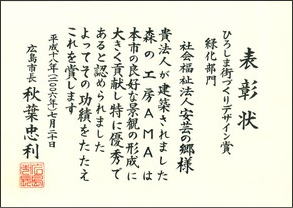 表彰状
ひろしま街づくりデザイン賞
緑化部門
社会福祉法人安芸の郷様
貴法人が建築されました
森の工房AMAは
本市の良好な景観の形成に
大きく貢献し特に優秀で
あると認められました
よってその功績をたたえ
これを賞します
平成十八年(二〇〇六年)七月二十日
広島市長 秋葉忠利